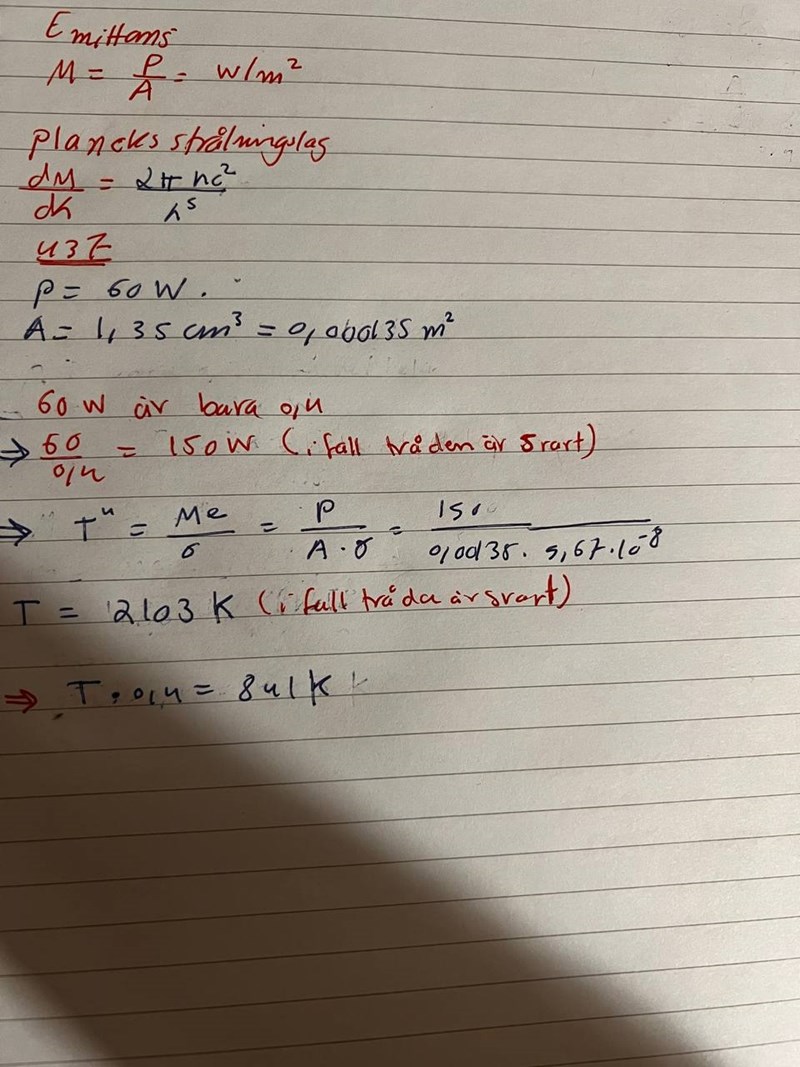 Emittans
M = P/A = W/m²
plancks strålningslag
dM/dλ = 2π hc²/λ⁵
437
P = 60 W.
A = 1,35 cm³ = 0,000135 m²
60 W är bara 0,4
⇒ 60/0,4 = 150 W (ifall tråden är svart)
⇒ T⁴ = Me/σ = P/(A·σ) = 150/(0,00135 · 5,67·10⁻⁸)
T = 2103 K (ifall tråden är svart)
⇒ T · 0,4 = 841 K